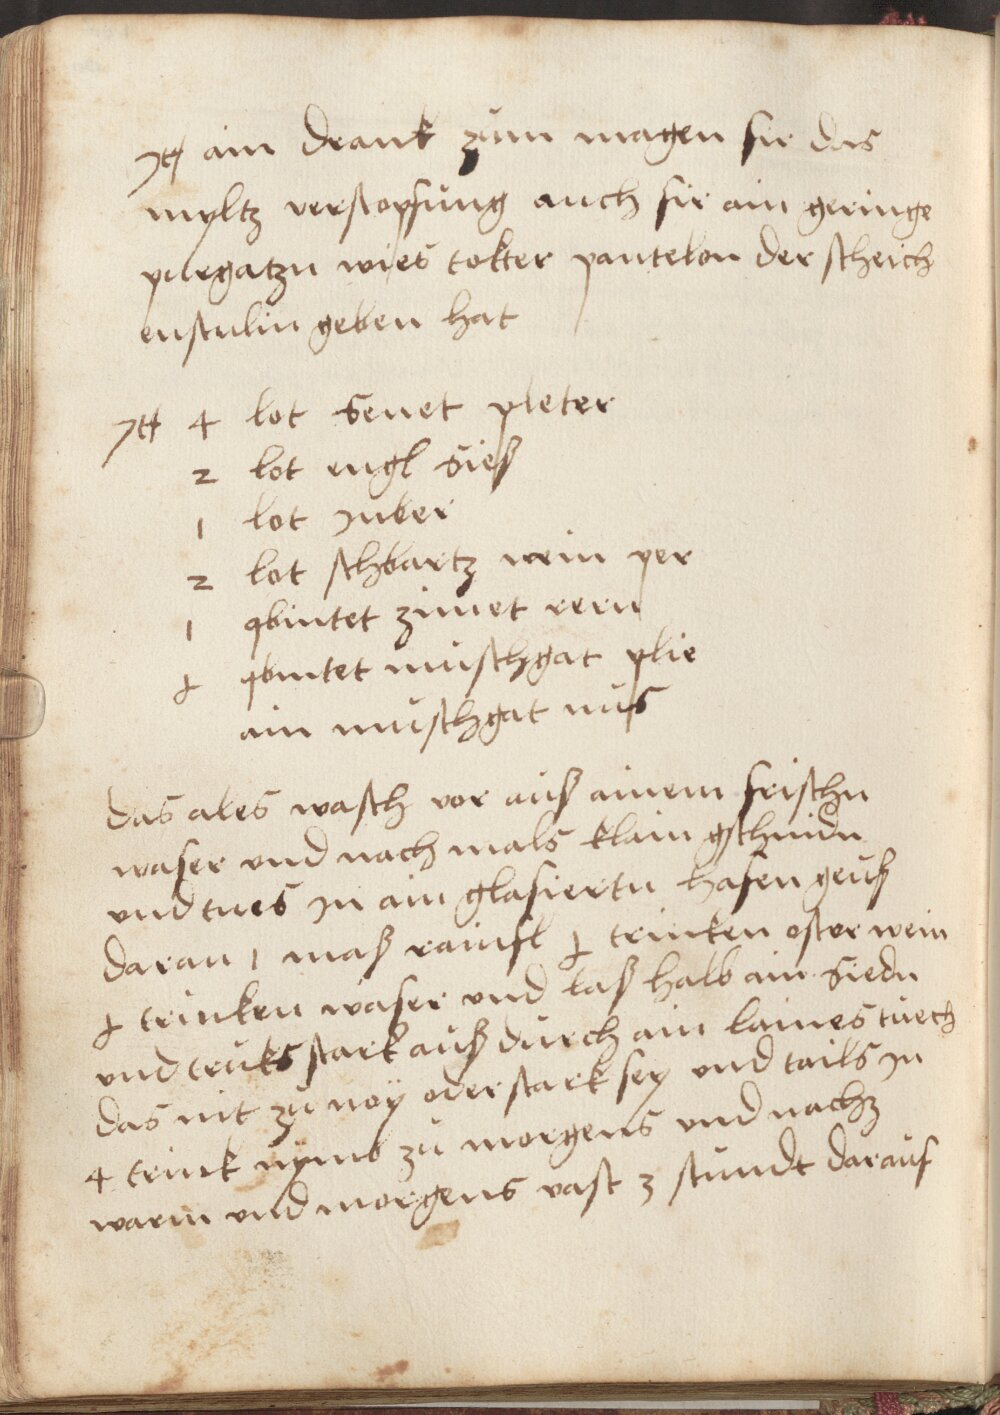 Jtt ain drank zum magen fir das
myltz verstopfung auch fir ain geringe
purgatzn wies tokter pantelon der scheich
enstulin geben hat
Jtt 4 lot senet pleter
2 lot engl sies
1 lot Jnber
2 lot schbartz wein per
1 qbintet zimet rern
½ qbintet muschgat plie
ain muschgat nus
das ales wasch vor aus ainem frischn
waser und nach mals klain gschnidn
und tues Jn ain glasiertn hafen geus
daran 1 mas rainfl ½ trinken oster wein
½ trinken waser und las halb ain siedn
und truks stark aus durch ain laines tuech
das nit zu noy oder stark sey und tails Jn
4 trink nymb zu morgens und nachz
warm und morgens vast 3 stundt darauf